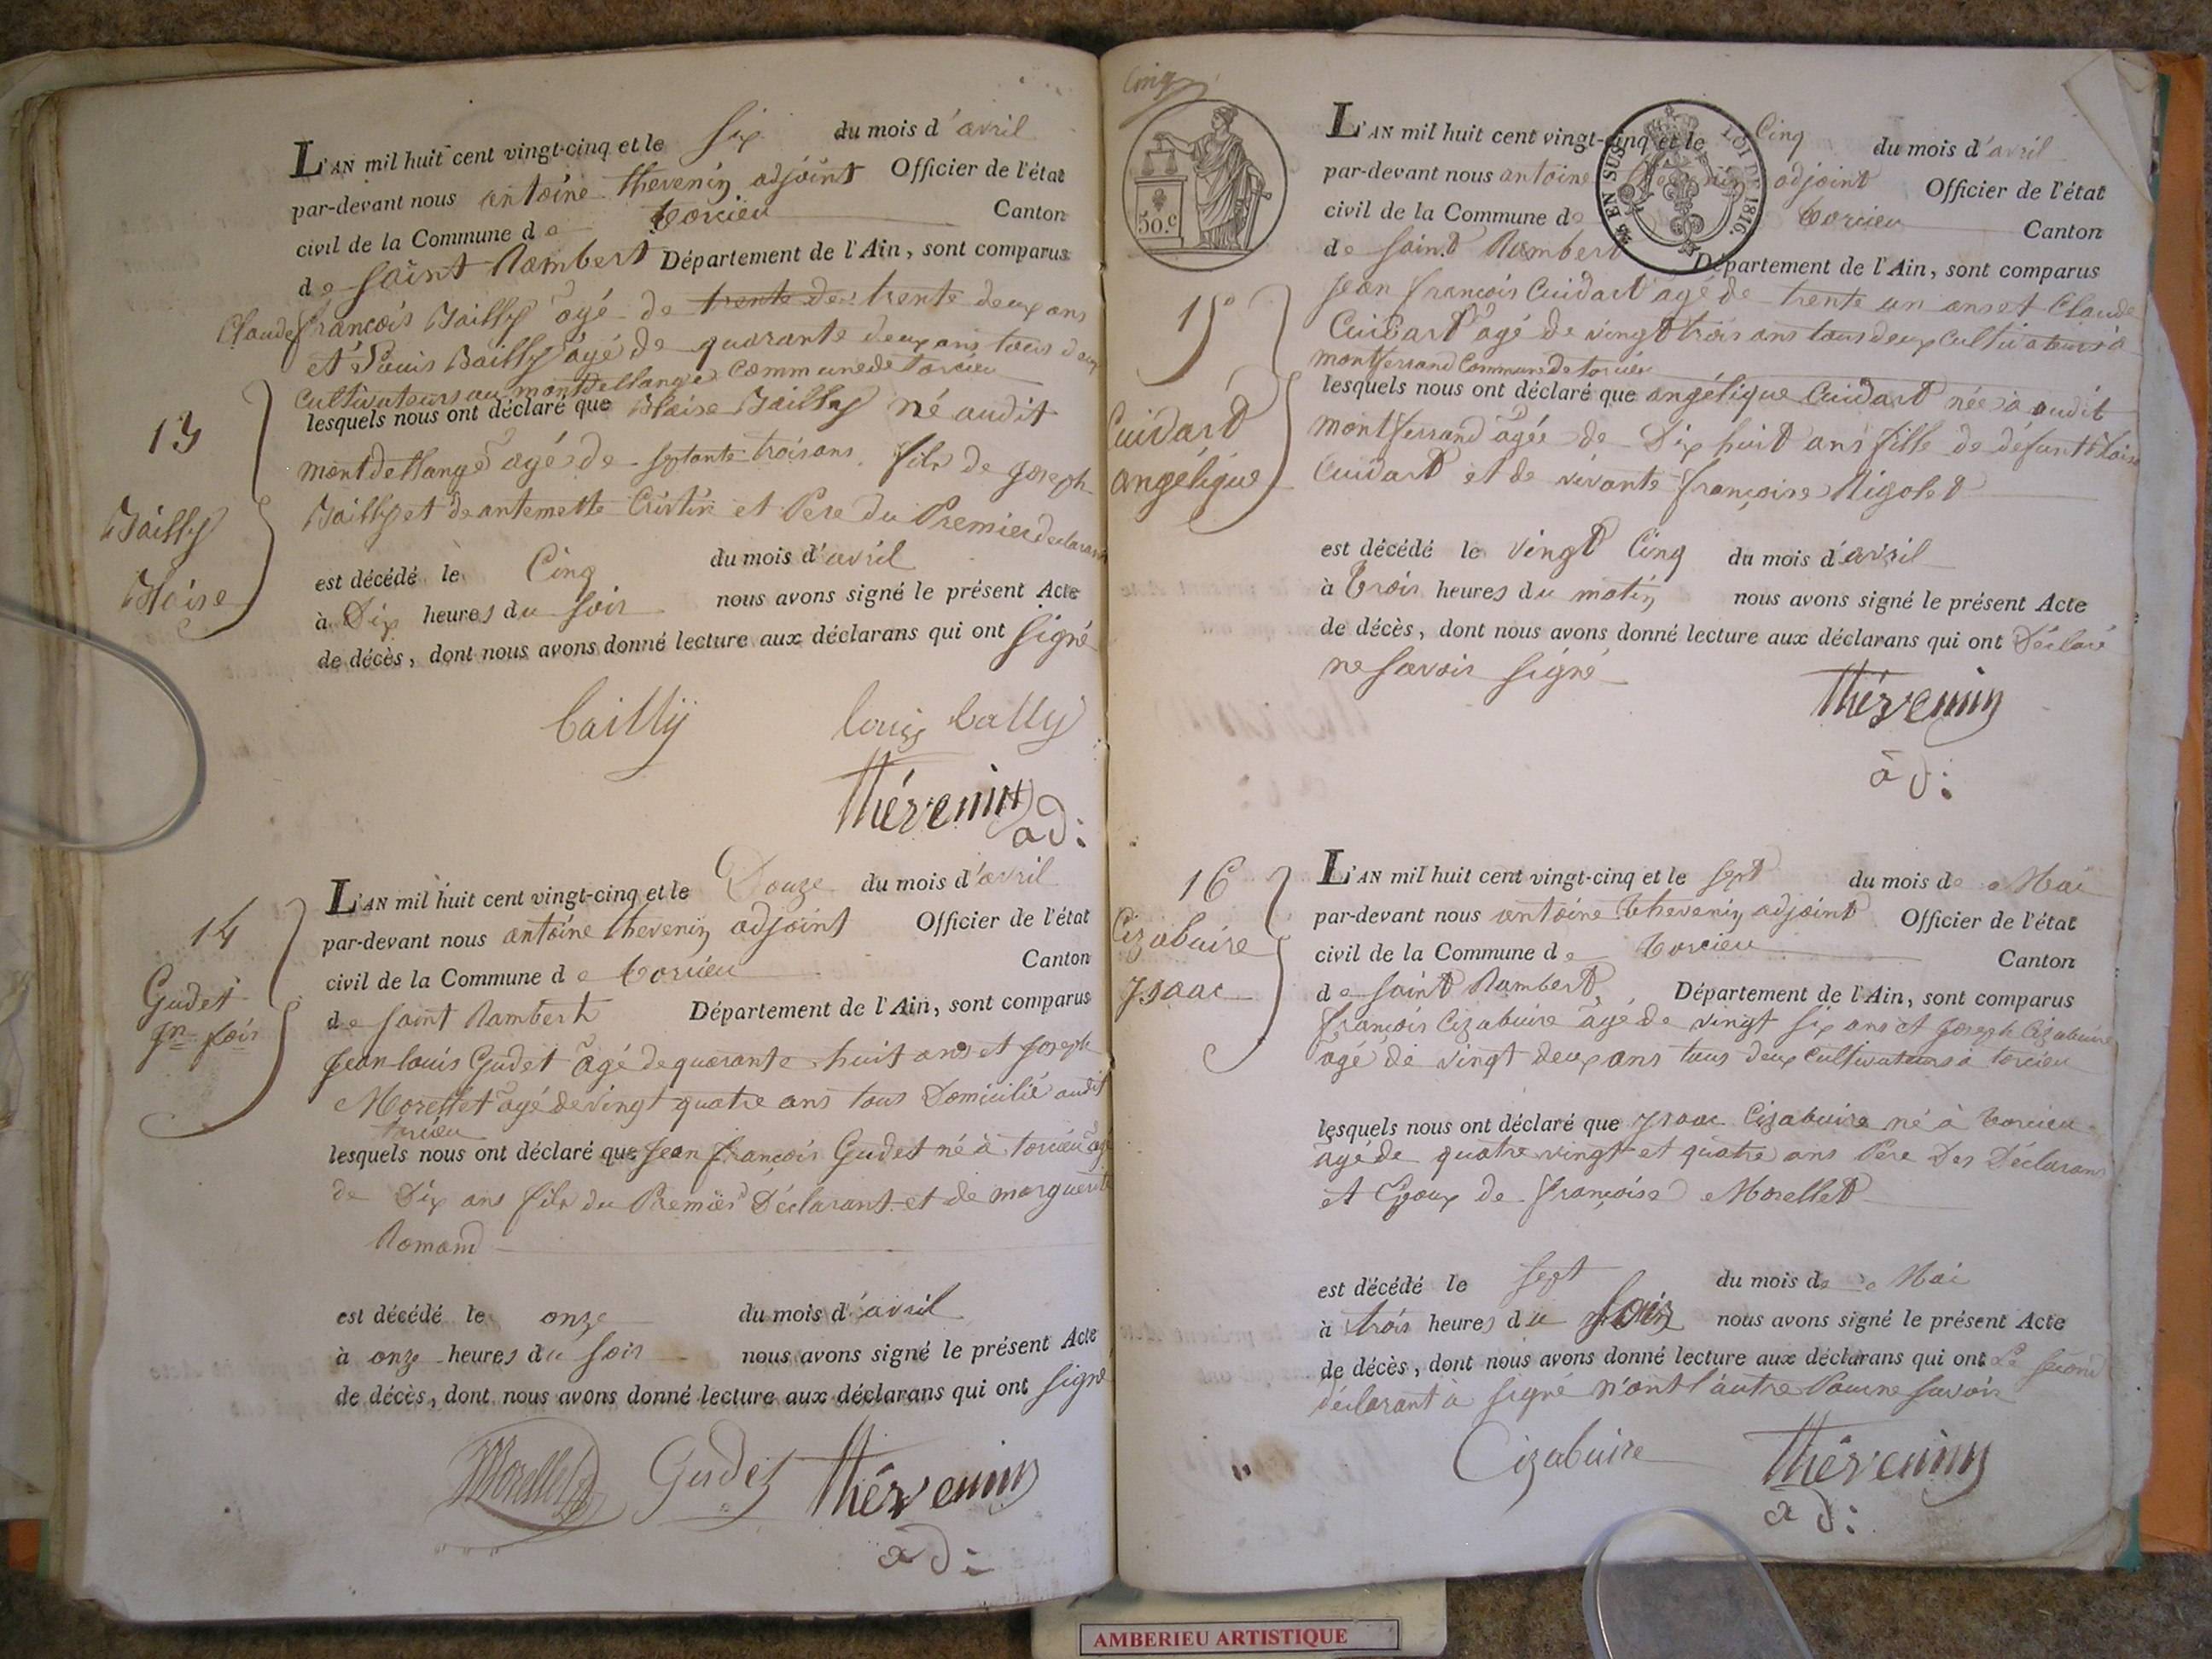 L'AN mil huit cent vingt-cinq et le six du mois d'avril
par-devant nous antoine thevenin adjoint Officier de l'état
civil de la Commune de torcieu Canton
de saint Rambert Département de l'Ain, sont comparus
Claude françois Bailly agé de trente de trente deux ans
et Louis Bailly agé de quarante deux ans tous deux
Cultivateurs au montdellange Commune de torcieu
lesquels nous ont déclaré que Blaise Bailly né audit
montdellange agé de septante trois ans fils de joseph
Bailly et de antemette et Pere du Premier declarant
est décédé le Cinq du mois d'avril
à Dix heures du soir nous avons signé le présent Acte
de décès, dont nous avons donné lecture aux déclarans qui ont signé
13
Bailly
Blaise
bailly louis bally
thévenin
ad:
L'AN mil huit cent vingt-cinq et le Douze du mois d'avril
par-devant nous antoine thevenin adjoint Officier de l'état
civil de la Commune de torcieu Canton
de saint Rambert Département de l'Ain, sont comparus
jean louis Gudet agé de quarante huit ans et joseph
Morellet agé de vingt quatre ans tous Domicilié audit
torcieu
lesquels nous ont déclaré que jean françois Gudet né à torcieu agé
de Dix ans fils du Premier Déclarant et de marguerite
Romand
est décédé le onze du mois d'avril
à onze heures du soir nous avons signé le présent Acte
de décès, dont nous avons donné lecture aux déclarans qui ont signé
14
Gudet
jn fois
Morellet Gudet thévenin
ad:
Cinq
50.c
EN SUS
LOI DE 1816.
L'AN mil huit cent vingt-cinq et le Cinq du mois d'avril
par-devant nous antoine thevenin adjoint Officier de l'état
civil de la Commune de torcieu Canton
de saint Rambert Département de l'Ain, sont comparus
jean françois Cuidart agé de trente un ans et Claude
Cuidart agé de vingt trois ans tous deux Cultivateurs à
montferrand Commune de torcieu
lesquels nous ont déclaré que angélique Cuidart née à audit
montferrand agée de Dix huit ans fille de défunt Blaise
Cuidart et de vivante françoise Rigolet
est décédé le vingt Cinq du mois d'avril
à trois heures du matin nous avons signé le présent Acte
de décès, dont nous avons donné lecture aux déclarans qui ont Déclaré
ne savoir signé
15
Cuidart
angélique
thévenin
ad:
L'AN mil huit cent vingt-cinq et le sept du mois de Mai
par-devant nous antoine thevenin adjoint Officier de l'état
civil de la Commune de torcieu Canton
de saint Rambert Département de l'Ain, sont comparus
françois Cizabuire agé de vingt six ans et joseph Cizabuire
agé de vingt deux ans tous deux Cultivateurs à torcieu
lesquels nous ont déclaré que isaac Cizabuire né à torcieu
agé de quatre vingt et quatre ans Pere Des Déclarans
et Epoux de françoise Morellet
est décédé le sept du mois de Mai
à trois heures du soir nous avons signé le présent Acte
de décès, dont nous avons donné lecture aux déclarans qui ont Le second
déclarant à signé n'ont l'autre Pour ne savoir
16
Cizabuire
isaac
Cizabuire thévenin
ad:
AMBERIEU ARTISTIQUE